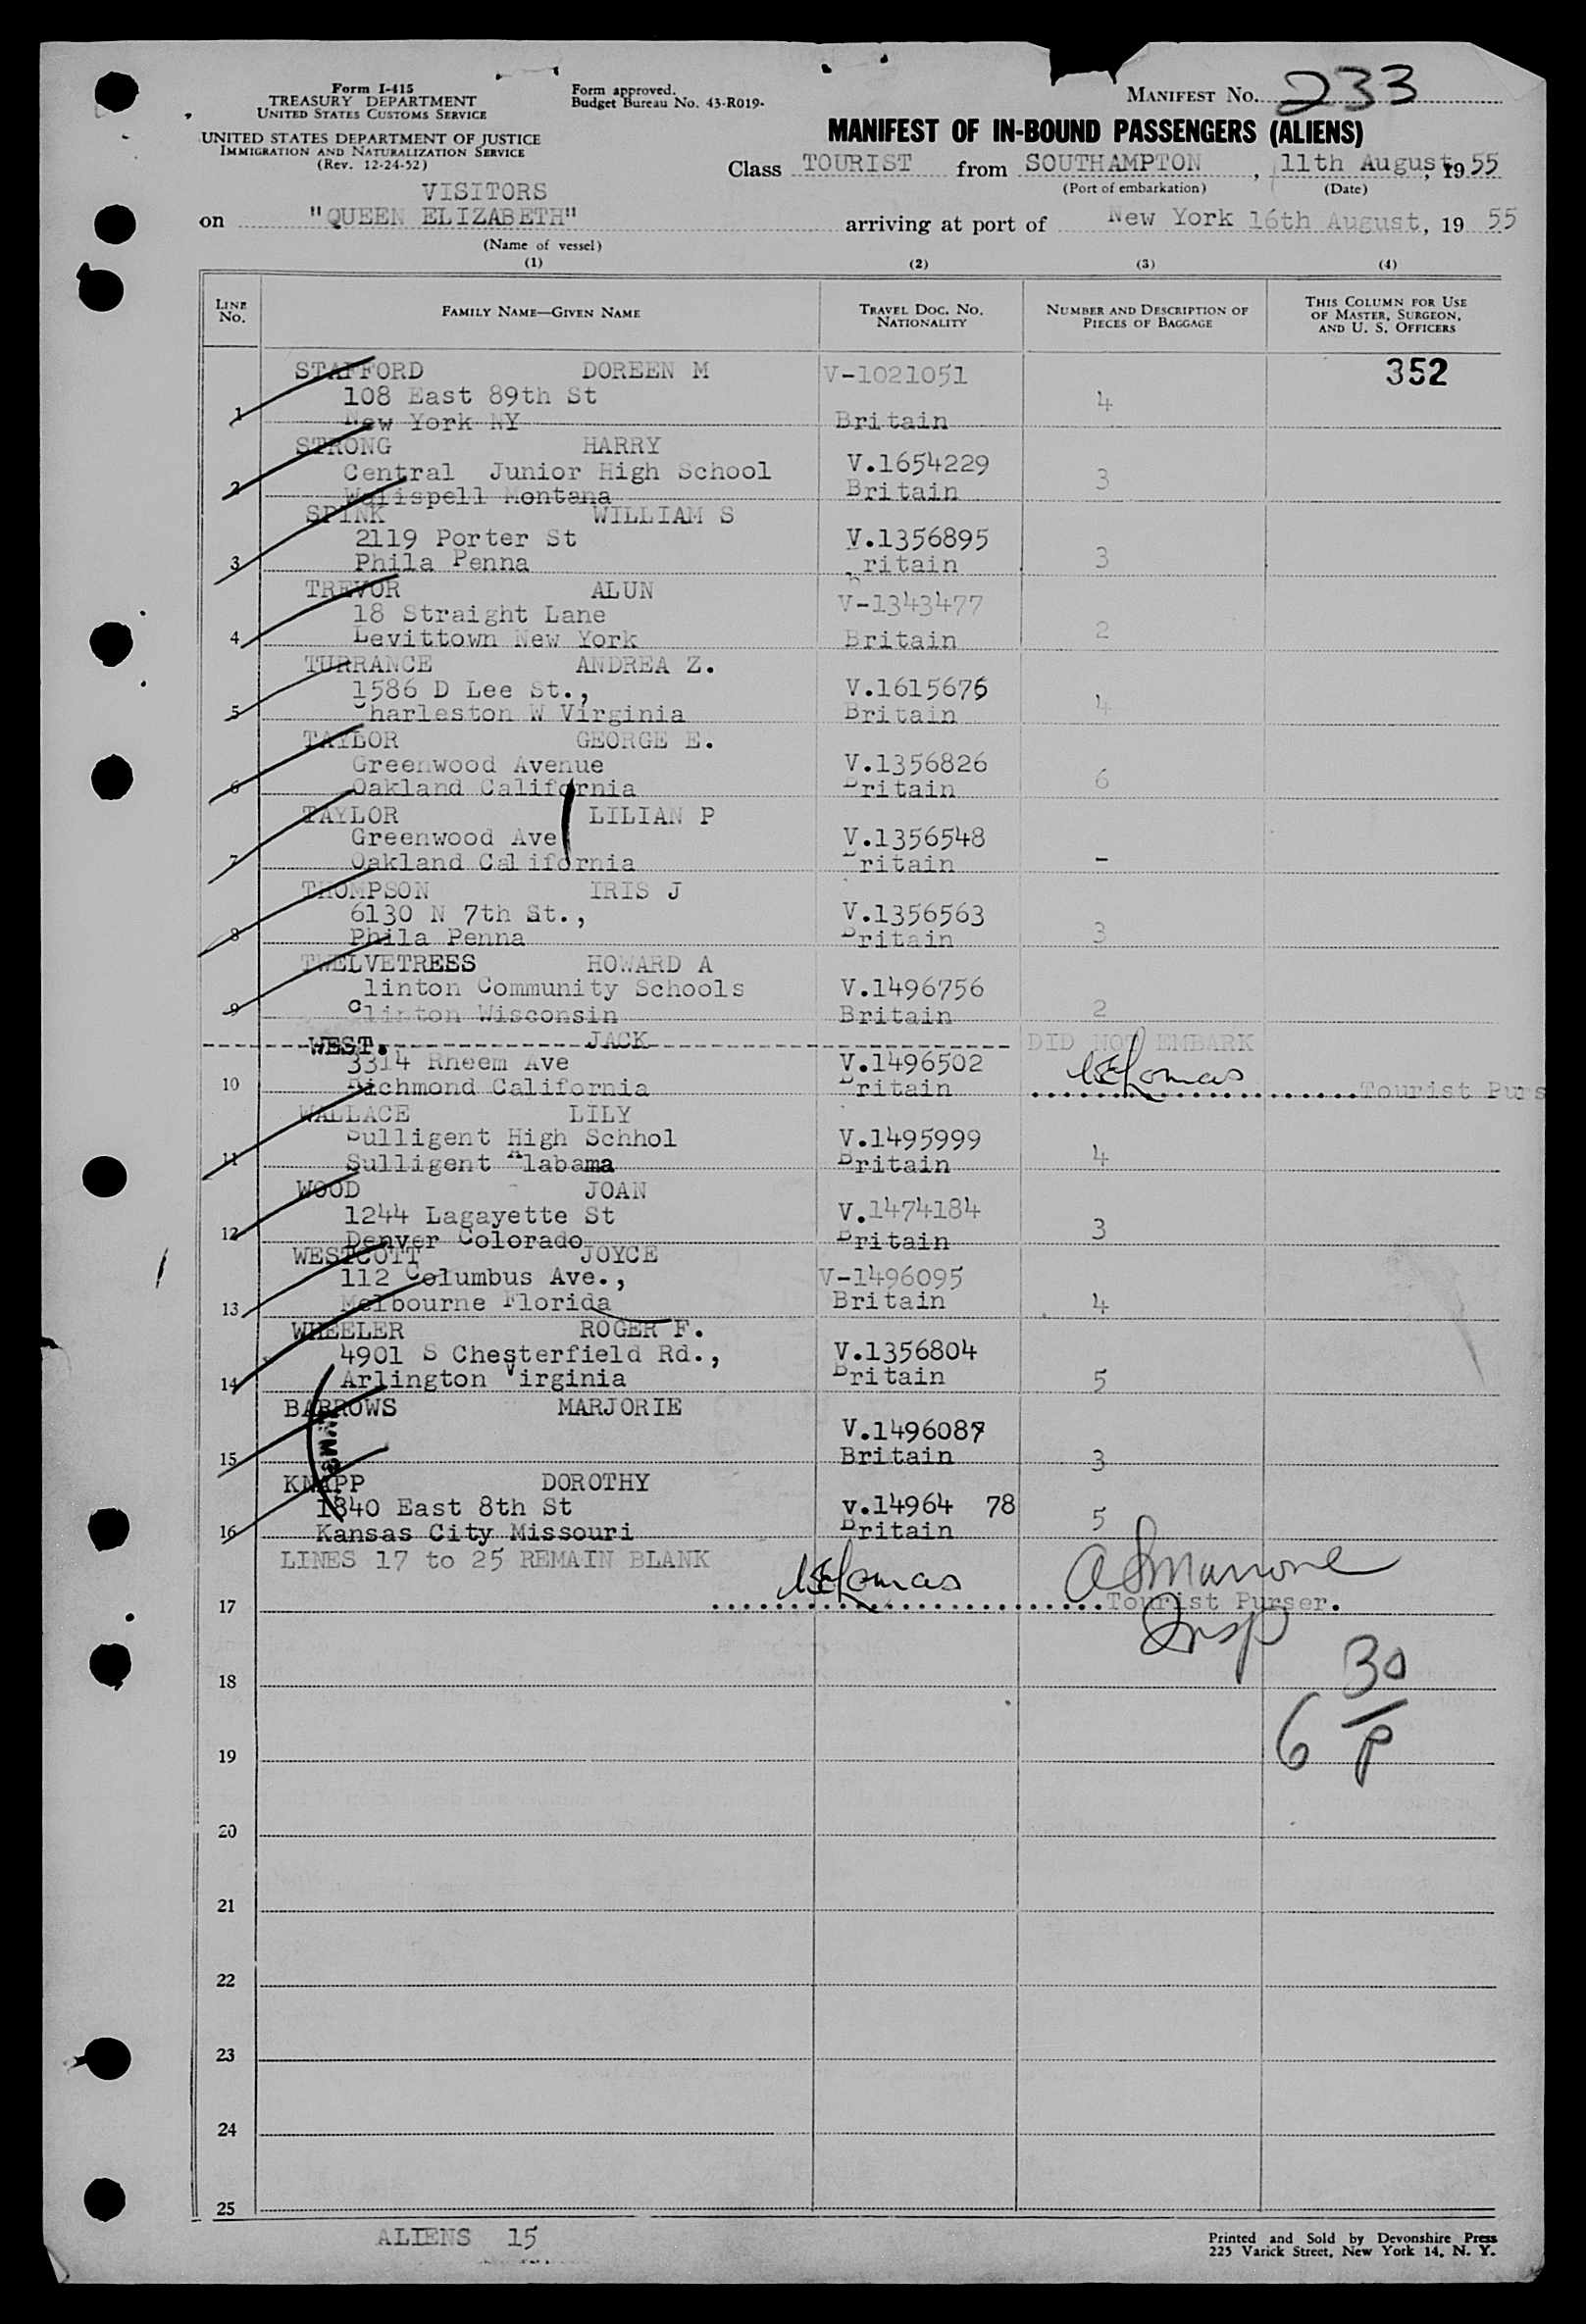 Form I-415
TREASURY DEPARTMENT
UNITED STATES CUSTOMS SERVICE
UNITED STATES DEPARTMENT OF JUSTICE
IMMIGRATION AND NATURALIZATION SERVICE
(Rev. 12-24-52)
Form approved.
Budget Bureau No. 43-R019-
MANIFEST NO. 233
MANIFEST OF IN-BOUND PASSENGERS (ALIENS)
Class TOURIST from SOUTHAMPTON, 11th August, 1955
(Port of embarkation) (Date)
VISITORS
on "QUEEN ELIZABETH" arriving at port of New York 16th August, 19 55
(Name of vessel)
(1) (2) (3) (4)
LINE NO. FAMILY NAME—GIVEN NAME TRAVEL DOC. NO. NATIONALITY NUMBER AND DESCRIPTION OF PIECES OF BAGGAGE THIS COLUMN FOR USE OF MASTER, SURGEON, AND U. S. OFFICERS
STAFFORD DOREEN M V-1021051 352
108 East 89th St 4
1 New York NY Britain
STRONG HARRY
Central Junior High School V.1654229 3
2 Walispell Montana Britain
SPINK WILLIAM S
2119 Porter St V.1356895
3 Phila Penna Britain 3
TREVOR ALUN
18 Straight Lane V-1343477
4 Levittown New York Britain 2
TURRANCE ANDREA Z.
1586 D Lee St., V.1615676
5 Charleston W Virginia Britain 4
TAYLOR GEORGE E.
Greenwood Avenue V.1356826
6 Oakland California Britain 6
TAYLOR LILIAN P
Greenwood Ave V.1356548
7 Oakland California Britain -
THOMPSON IRIS J
6130 N 7th St., V.1356563
8 Phila Penna Britain 3
TWELVETREES HOWARD A
linton Community Schools V.1496756
9 Clinton Wisconsin Britain 2
WEST. JACK DID NOT EMBARK
3314 Rheem Ave V.1496502
10 Richmond California Britain Tourist Purs
WALLACE LILY
Sulligent High Schhol V.1495999
11 Sulligent Alabama Britain 4
WOOD JOAN
1244 Lagayette St V.1474184
12 Denver Colorado Britain 3
WESTCOTT JOYCE
112 Columbus Ave., V-1496095
13 Melbourne Florida Britain 4
WHEELER ROGER F.
4901 S Chesterfield Rd., V.1356804
14 Arlington Virginia Britain 5
BARROWS MARJORIE
V.1496087
15 Britain 3
KNAPP DOROTHY
1840 East 8th St v.14964 78
16 Kansas City Missouri Britain 5
LINES 17 to 25 REMAIN BLANK
17 Tourist Purser.
Insp
18 30
19 6 P
20
21
22
23
24
25
ALIENS 15
Printed and Sold by Devonshire Press
225 Varick Street, New York 14, N. Y.